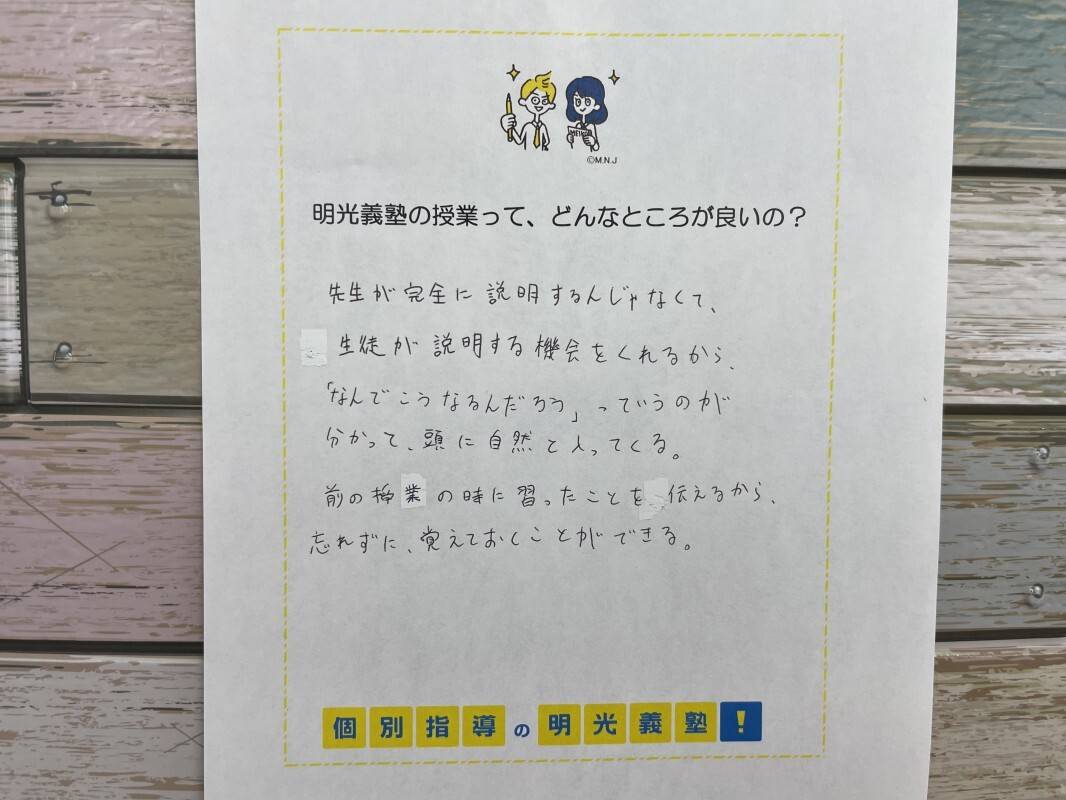 ©M.N.J
明光義塾の授業って、どんなところが良いの？
先生が完全に説明するんじゃなくて、
生徒が説明する機会をくれるから、
「なんでこうなるんだろう」っていうのが
分かって、頭に自然と入ってくる。
前の授業の時に習ったことを伝えるから、
忘れずに、覚えておくことができる。
個別指導の明光義塾!